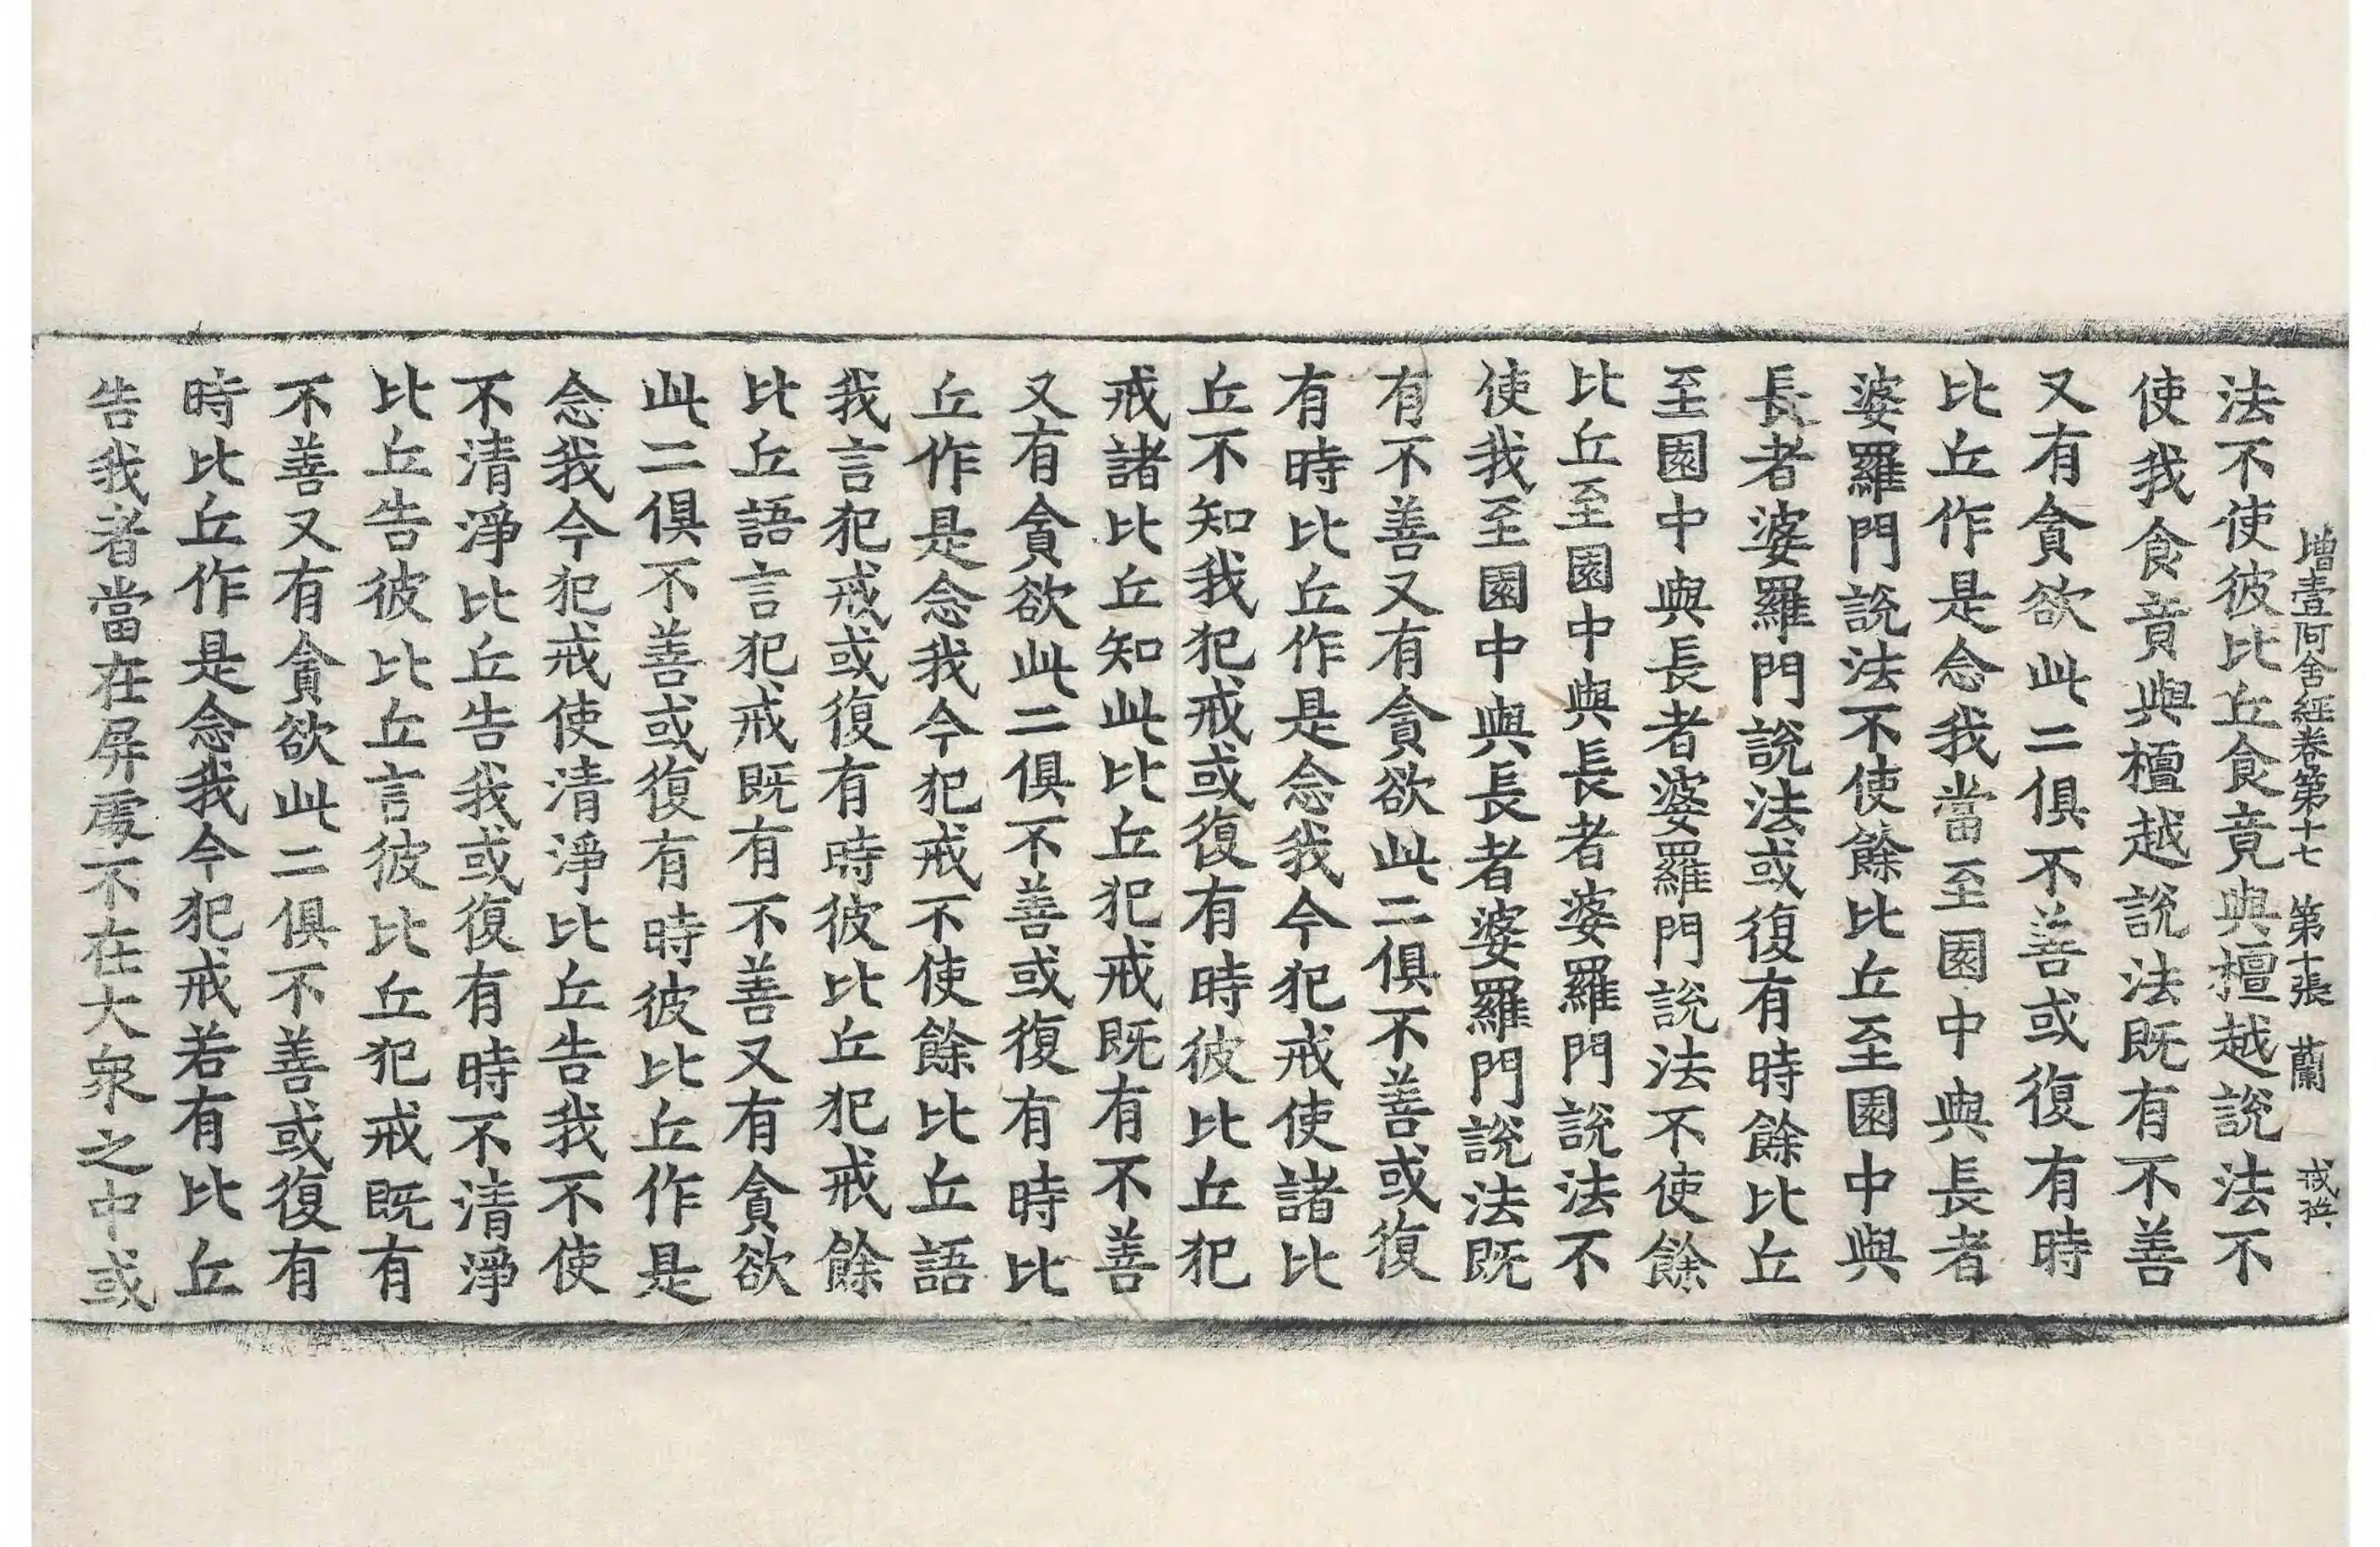 增壹阿含經卷第十七 第十張 蘭 戒
法不使彼比丘食竟與檀越說法不
使我食竟與檀越說法既有不善
又有貪欲此二俱不善或復有時
比丘作是念我當至園中與長者
婆羅門說法不使餘比丘至園中與
長者婆羅門說法或復有時餘比丘
至園中與長者婆羅門說法不使餘
比丘至園中與長者婆羅門說法不
使我至園中與長者婆羅門說法既
有不善又有貪欲此二俱不善或復
有時比丘作是念我今犯戒使諸比
丘不知我犯戒或復有時彼比丘犯
戒諸比丘知此比丘犯戒既有不善
又有貪欲此二俱不善或復有時比
丘作是念我今犯戒不使餘比丘語
我言犯戒或復有時彼比丘犯戒餘
比丘語言犯戒既有不善又有貪欲
此二俱不善或復有時彼比丘作是
念我今犯戒使清淨比丘告我不使
不清淨比丘告我或復有時不清淨
比丘告彼比丘言彼比丘犯戒既有
不善又有貪欲此二俱不善或復有
時比丘作是念我今犯戒若有比丘
告我者當在屏處不在大眾之中或